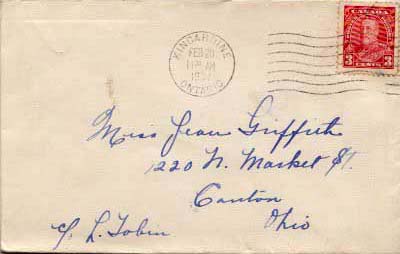 KINCARDINE
FEB 20
11 AM
ONTARIO
CANADA
3 3
CENTS
Miss Jean Griffith
1220 N. Market St.
Canton
Ohio
c/o L. Tobin